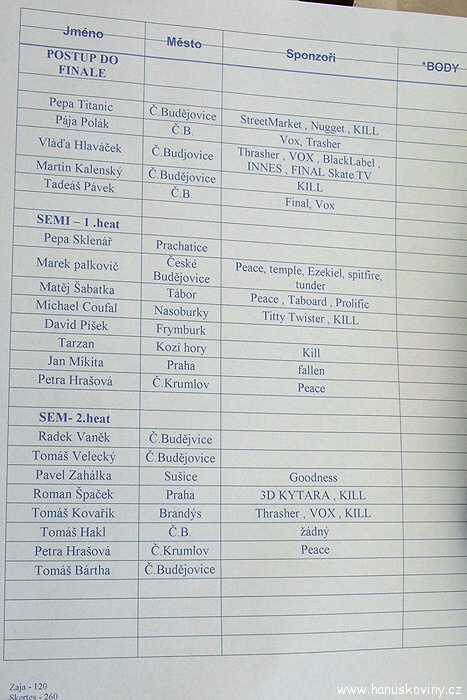 Jméno Město Sponzoři *BODY
POSTUP DO
FINALE
Pepa Titanic Č.Budějovice StreetMarket , Nugget , KILL
Pája Polák Č.B. Vox, Trasher
Vláďa Hlaváček Č.Budjovice Thrasher , VOX , BlackLabel ,
INNES , FINAL Skate TV
Martin Kalenský Č.Budějovice KILL
Tadeáš Pávek Č.B. Final, Vox
SEMI – 1 .heat
Pepa Sklenář Prachatice
Marek palkovič České
Budějovice Peace, temple, Ezekiel, spitfire,
tunder
Matěj Šabatka Tábor Peace , Taboard , Prolific
Michael Coufal Nasoburky Titty Twister , KILL
David Píšek Frymburk
Tarzan Kozi hory Kill
Jan Mikita Praha fallen
Petra Hrašová Č.Krumlov Peace
SEM- 2.heat
Radek Vaněk Č.Budějvice
Tomáš Velecký Č.Budějovice
Pavel Zahálka Sušice Goodness
Roman Špaček Praha 3D KYTARA , KILL
Tomáš Kovařík Brandýs Thrasher , VOX , KILL
Tomáš Hakl Č.B. žádný
Petra Hrašová Č.Krumlov Peace
Tomáš Bártha Č.Budějovice
Zaja - 120
Skertes - 260
www.hanuskoviny.cz